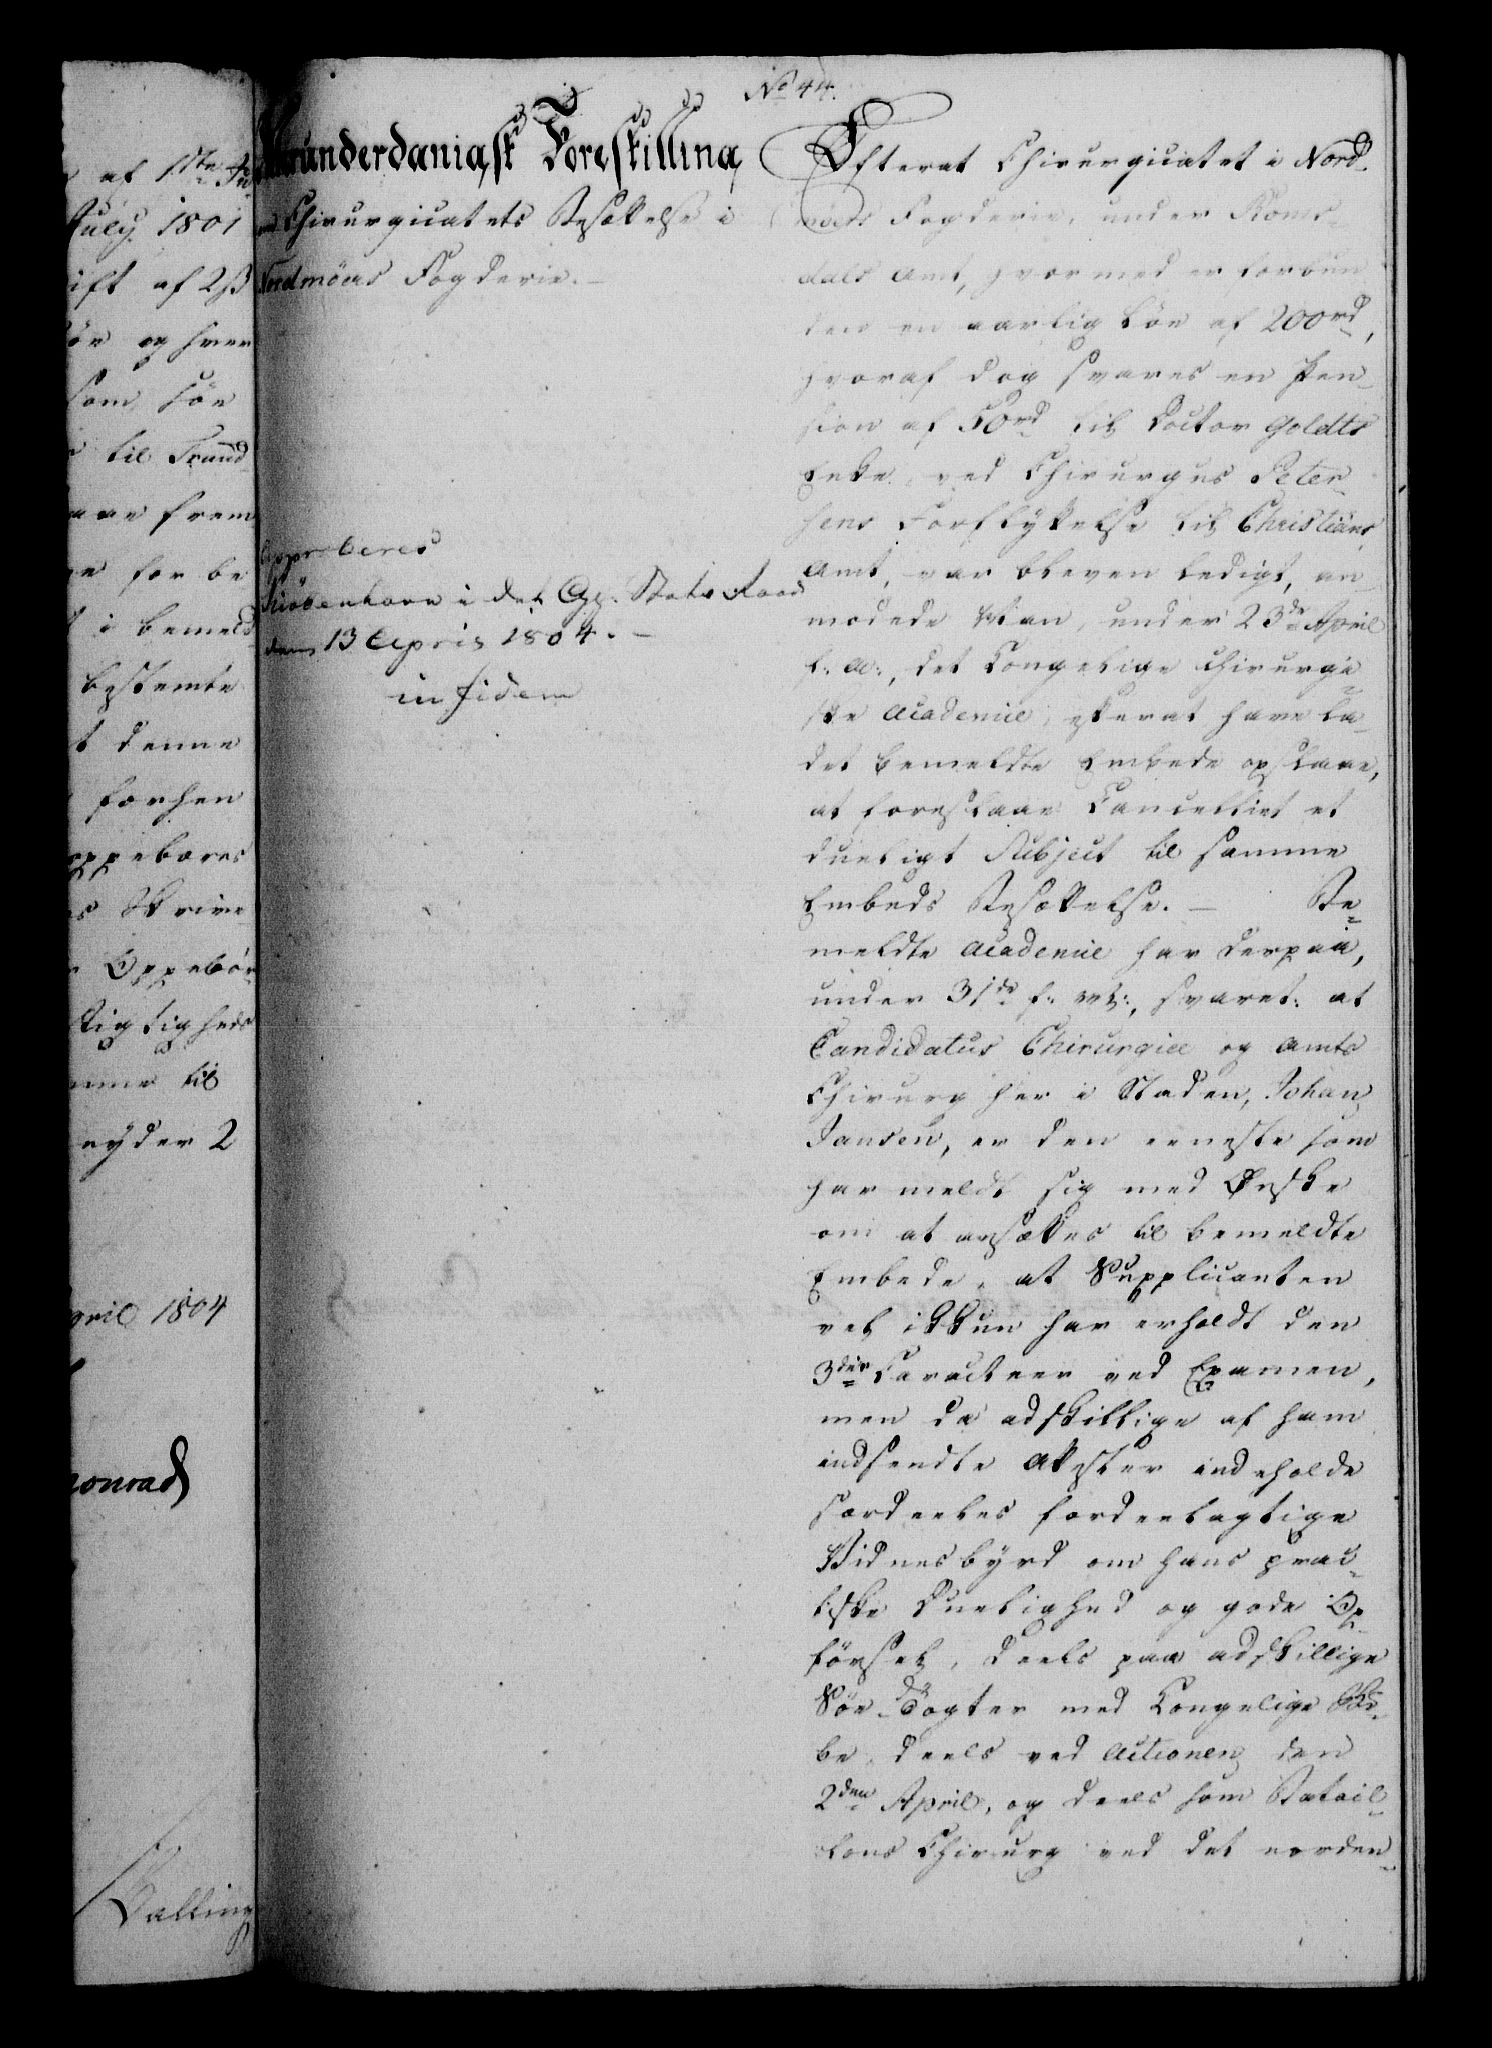 No 44.
Allerunderdanigst Forestilling
om Chirurgicatets Besættelse i
Nordmöers Fogderie. -
Approberes
Kiöbenhavn i det Geh. Stats Raad
den 13 April 1804. -
in fidem
Efterat Chirurgicatet i Nord-
möers Fogderie, under Roms-
dals Amt, hvormed er forbun
den en aarlig Løn af 200rd,
hvoraf dog svares en Pen-
sion af 50rd til Doctor Goldts
Enke, ved Chirurgus Peter-
sens Forflyttelse til Christians
Amt, var bleven ledigt, an-
modede Man, under 23de April
f: A:, det Kongelige Chirurgi-
ske Academie, efterat have la-
det bemeldte Embede opslaae,
at foreslaae Cancelliet et
dueligt Subject til samme
Embeds Besættelse. - Be-
meldte Academie har derpaa,
under 31de f: M:, svaret: at
Candidatus Chirurgiæ og Amts
Chirurg her i Staden, Johan
Jansen, er den eeneste som
har meldt sig med Ønske
om at ansættes til bemeldte
Embede, at Supplicanten
vel ikkun har erholdt den
3die Caracteer ved Examen,
men da adskillige af ham
indsendte Attester indeholde
særdeeles fordeelagtige
Vidnesbyrd om hans prac-
tiske Duelighed og gode Op-
försel, deels paa adskillige
Söe-Togter med Kongelige Ski-
be, deels ved Actionen den
2den April, og deels som Batail-
lons Chirurg ved det norden-
af 1ste
July 1801
ift af 2 ß
og hver
som søe
til Trond
aae frem
for be
i bemeld
bestemte
denne
forhen
oppebæres
Skrive
Oppebör
Rigtigheds
til
nyder 2
April 1804
Monrad
Balling